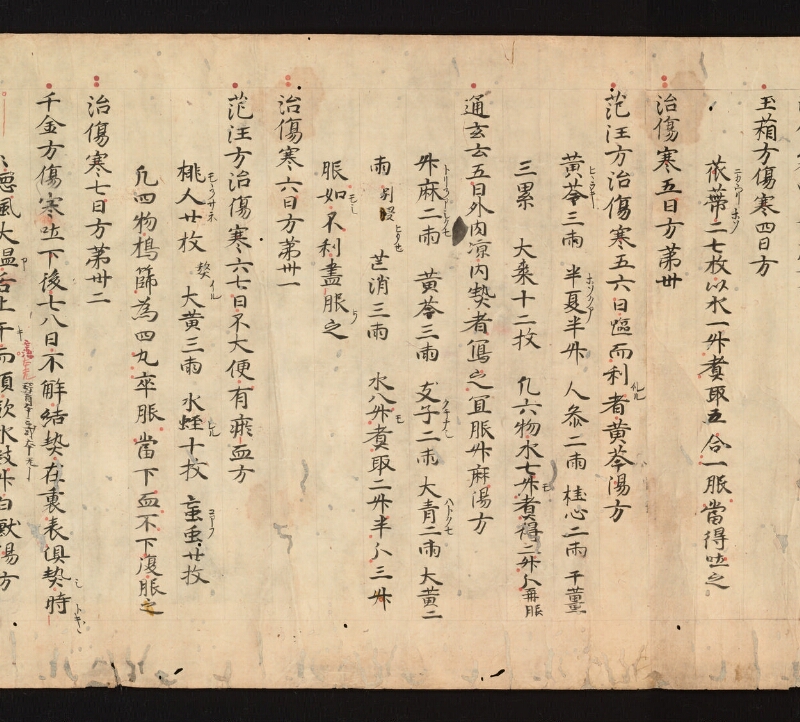 玉葙方傷寒四日方
苽蔕二七枚以水一升煮取五合一服當得吐之
治傷寒五日方第卅
范汪方治傷寒五六日嘔而利者黃芩湯方
黃芩三兩 半夏半升 人參二兩 桂心二兩 干薑
三累 大棗十二枚 凡六物水七升煮得二升分再服
通玄云五日外内涼内熱者寫之宜服升麻湯方
升麻二兩 黃芩三兩 支子二兩 大青二兩 大黃二
兩別浸 芒消三兩 水八升煮取二升半分三升
服如不利盡服之
治傷寒六日方第卅一
范汪方治傷寒六七日不大便有瘀血方
桃人廿枚熬 大黃三兩 水蛭十枚 䖟虫廿枚
凡四物搗篩為四丸卒服當下血不下復服之
治傷寒七日方第卅二
千金方傷寒吐下後七八日不解結熱在裏表俱熱時
惡風大渴舌上干而煩欲水數升白獸湯方